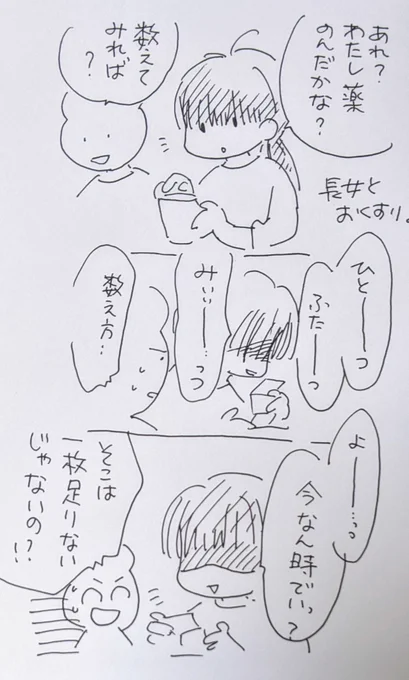 あれ？
わたし薬
のんだかな？
数えて
みれば
？
長女と
おくすり。
ひとーーつ
ふたーーつ
みぃぃーー…っつ
数え方…
よーー…っつ
今なん時でぃっ？
そこは
一枚足りない
じゃないの！？